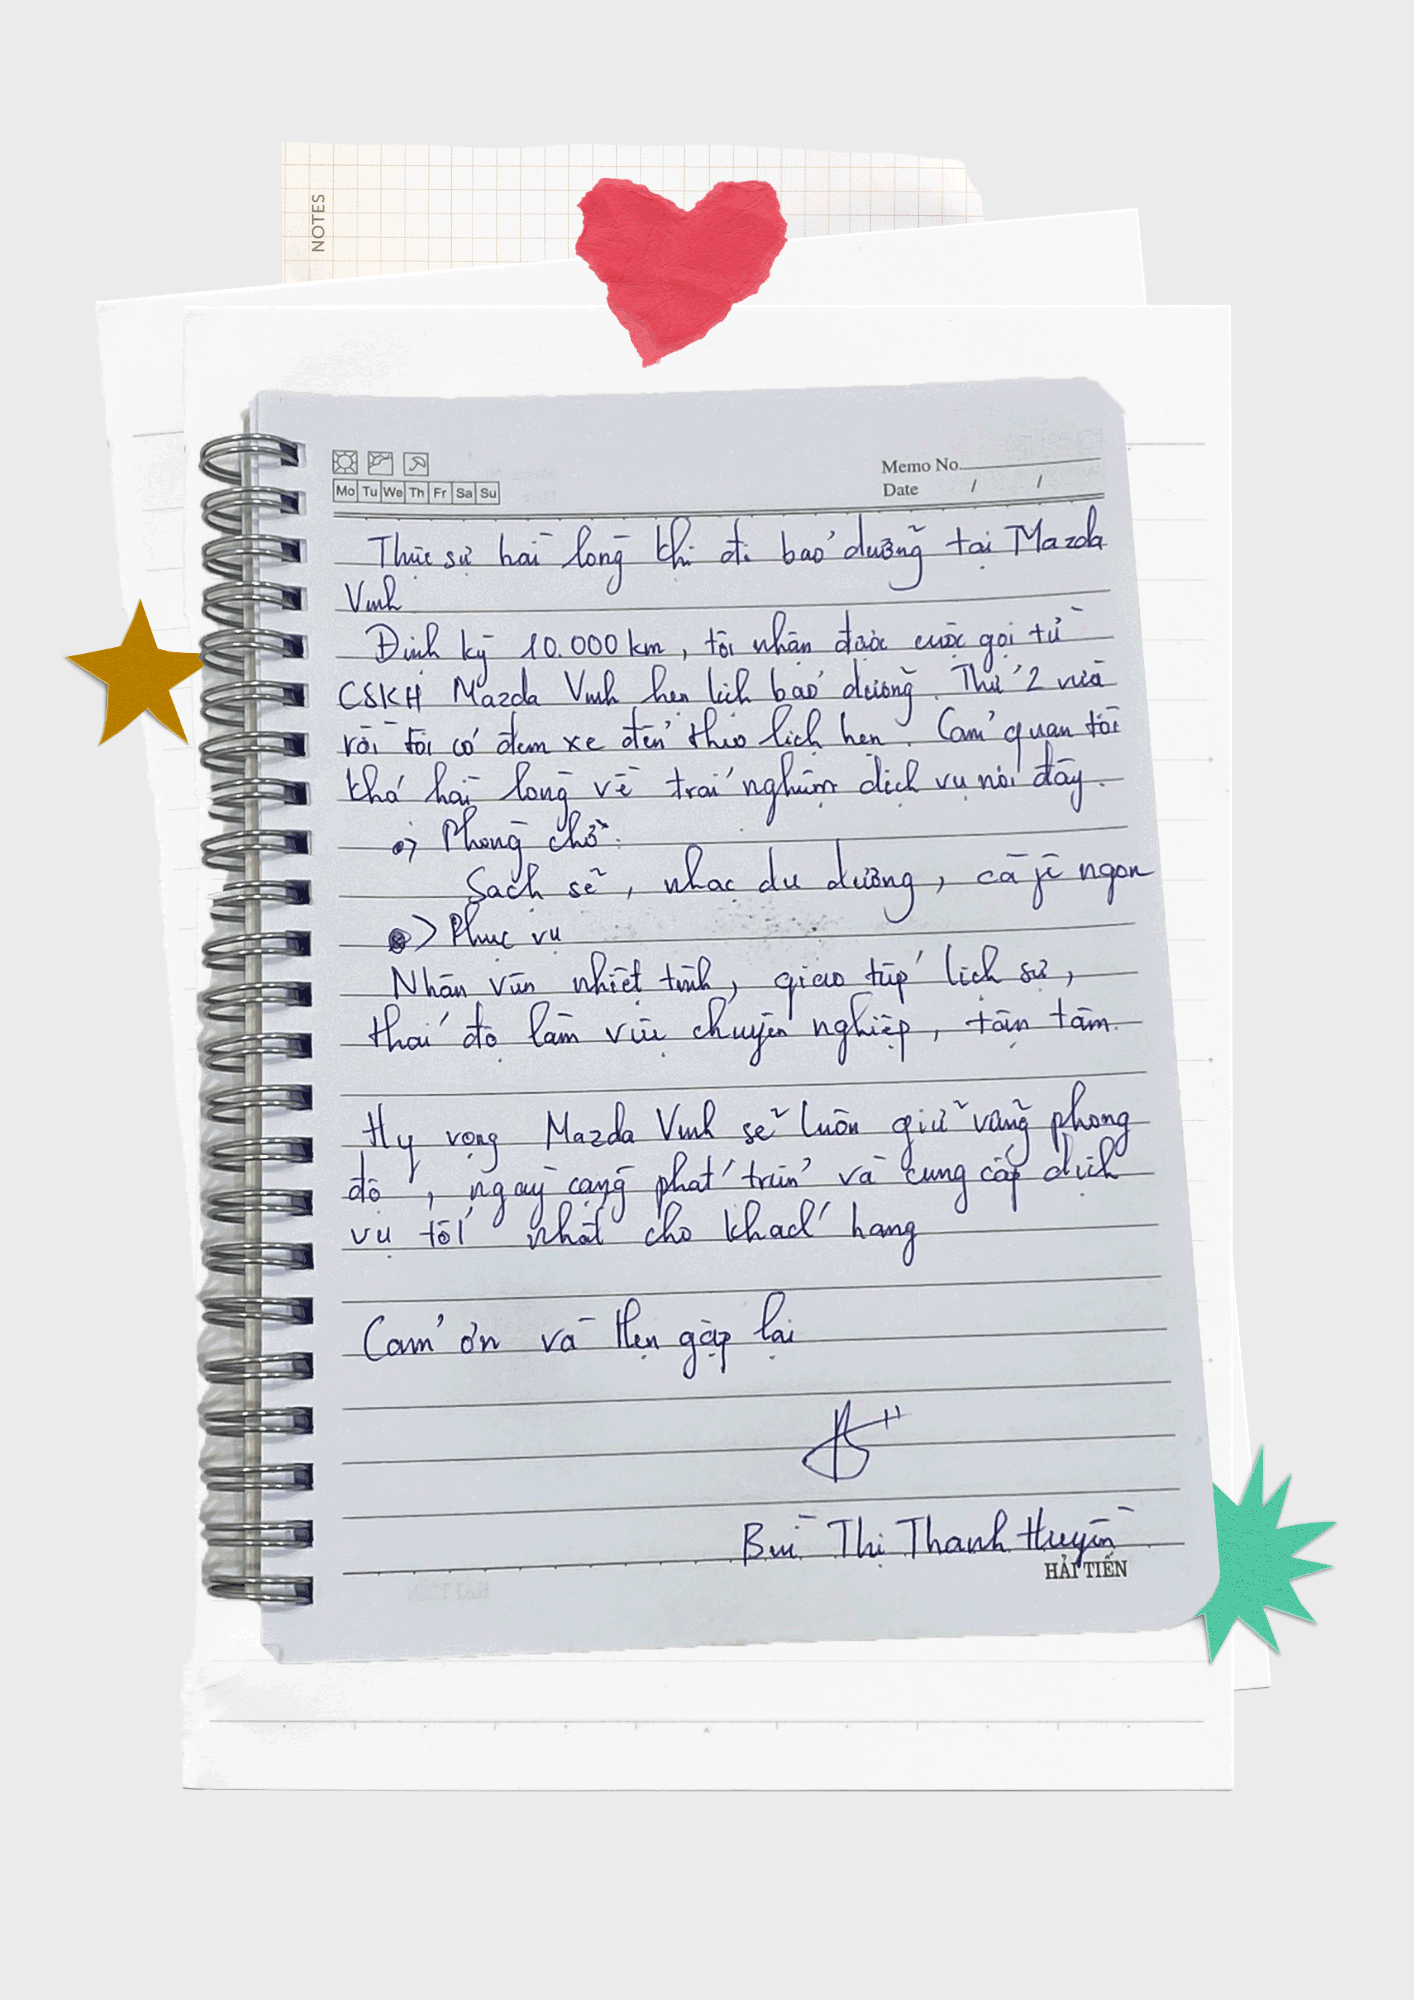 NOTES
Memo No.
Mo Tu We Th Fr Sa Su
Date / /
Thực sự hài lòng khi đi bảo dưỡng tại Mazda
Vinh
Định kỳ 10.000 km, tôi nhận được cuộc gọi từ
CSKH Mazda Vinh hẹn lịch bảo dưỡng. Thứ 2 vừa
rồi tôi có đem xe đến theo lịch hẹn. Cảm quan tôi
khá hài lòng về trải nghiệm dịch vụ nơi đây.
Phòng chờ:
Sạch sẽ, nhạc du dương, cà fê ngon
Phục vụ
Nhân viên nhiệt tình, giao tiếp lịch sự,
thái độ làm việc chuyên nghiệp, tận tâm.
Hy vọng Mazda Vinh sẽ luôn giữ vững phong
độ, ngày càng phát triển và cung cấp dịch
vụ tốt nhất cho khách hàng
Cảm ơn và Hẹn gặp lại
Bùi Thị Thanh Huyền
HẢI TIẾN